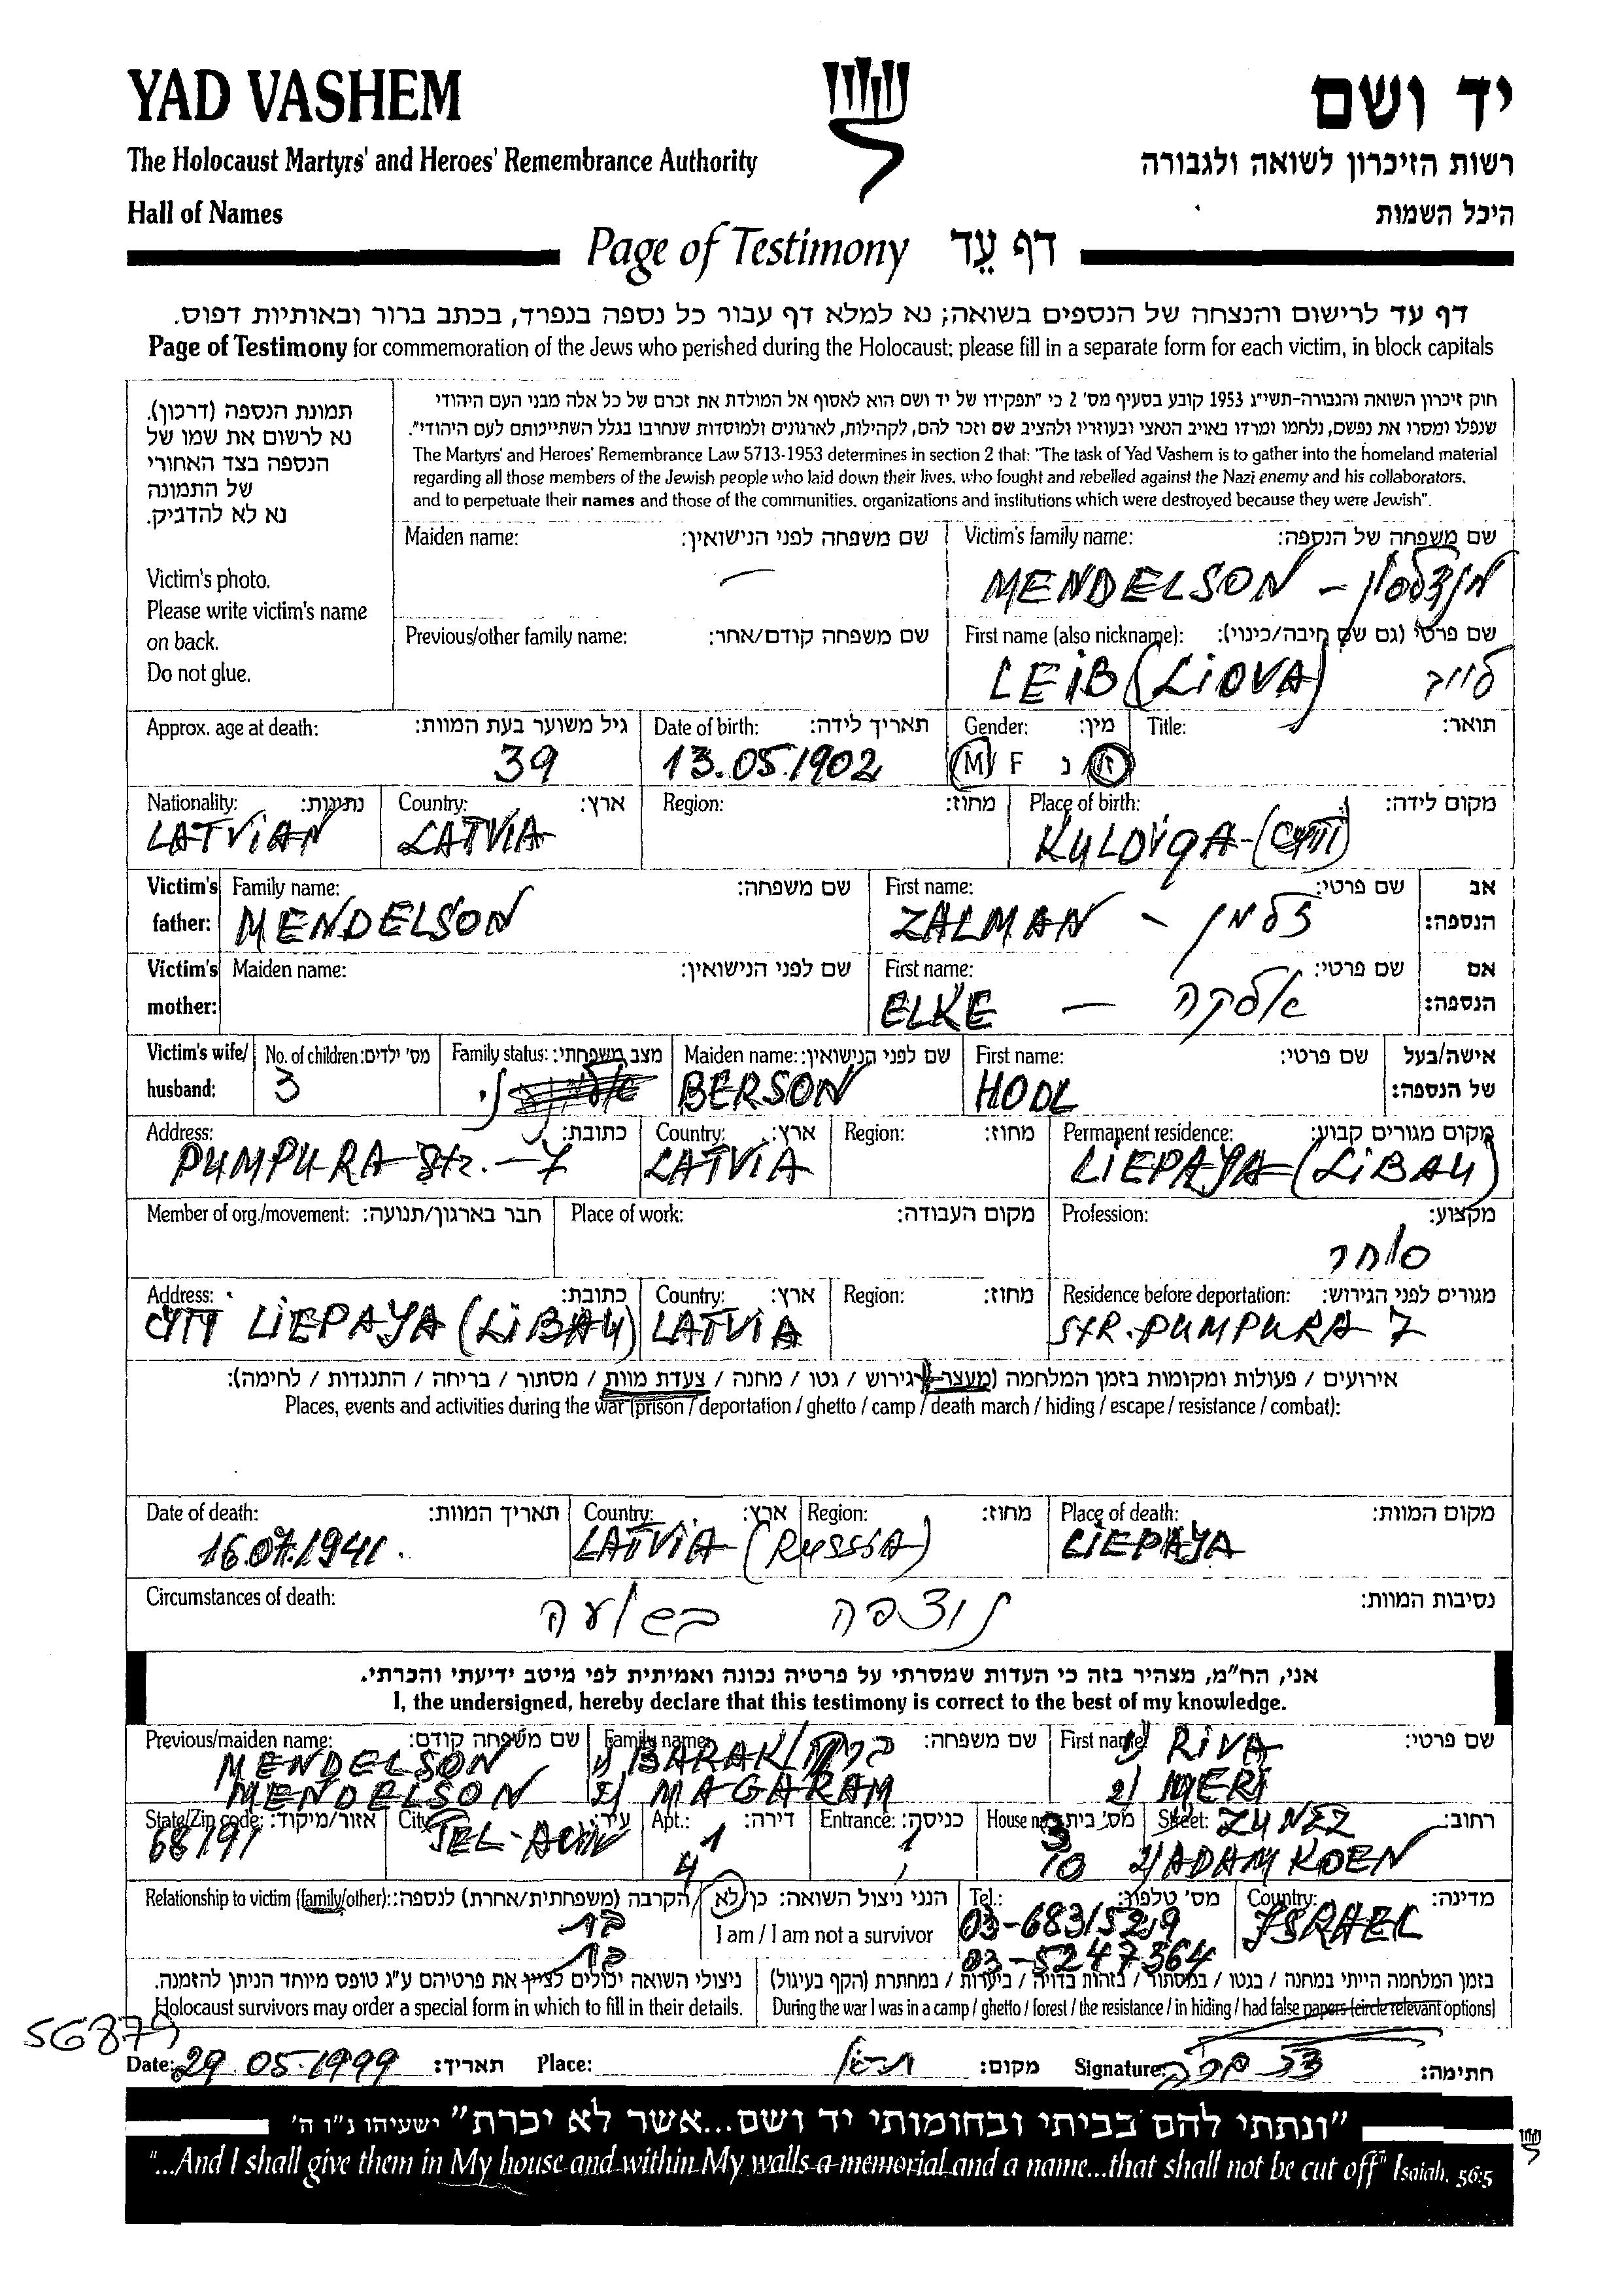 YAD VASHEM
יד ושם
The Holocaust Martyrs' and Heroes' Remembrance Authority
רשות הזיכרון לשואה ולגבורה
Hall of Names
היכל השמות
Page of Testimony דף עֵד
דף עד לרישום והנצחה של הנספים בשואה; נא למלא דף עבור כל נספה בנפרד, בכתב ברור ובאותיות דפוס.
Page of Testimony for commemoration of the Jews who perished during the Holocaust; please fill in a separate form for each victim, in block capitals
תמונת הנספה (דרכון).
נא לרשום את שמו של
הנספה בצד האחורי
של התמונה
נא לא להדביק.
Victim's photo.
Please write victim's name
on back.
Do not glue.
חוק זיכרון השואה והגבורה-תשי"ג 1953 קובע בסעיף מס' 2 כי "תפקידו של יד ושם הוא לאסוף אל המולדת את זכרם של כל אלה מבני העם היהודי
שנפלו ומסרו את נפשם, נלחמו ומרדו באויב הנאצי ובעוזריו ולהציב שם וזכר להם, לקהילות, לארגונים ולמוסדות שנחרבו בגלל השתייכותם לעם היהודי".
The Martyrs' and Heroes' Remembrance Law 5713-1953 determines in section 2 that: "The task of Yad Vashem is to gather into the homeland material
regarding all those members of the Jewish people who laid down their lives, who fought and rebelled against the Nazi enemy and his collaborators,
and to perpetuate their names and those of the communities, organizations and institutions which were destroyed because they were Jewish".
Maiden name: שם משפחה לפני הנישואין:
Victim's family name: שם משפחה של הנספה:
MENDELSON - מנדלסון
Previous/other family name: שם משפחה קודם/אחר:
First name (also nickname): שם פרטי (גם שם חיבה/כינוי):
LEIB (LIOVA) לייב
Approx. age at death: גיל משוער בעת המוות:
39
Date of birth: תאריך לידה:
13.05.1902
Gender: מין:
M F נ ז
Title: תואר:
Nationality: נתינות:
LATVIAN
Country: ארץ:
LATVIA
Region: מחוז:
Place of birth: מקום לידה:
KULDIGA-(CYTI)
Victim's father:
Family name: שם משפחה:
MENDELSON
First name: שם פרטי:
ZALMAN - זלמן
אב הנספה:
Victim's mother:
Maiden name: שם לפני הנישואין:
First name: שם פרטי:
ELKE — אלקה
אם הנספה:
Victim's wife/ husband:
No. of children: מס' ילדים:
3
Family status: מצב משפחתי:
Maiden name: שם לפני הנישואין:
BERSON
First name: שם פרטי:
HODL
אישה/בעל של הנספה:
Address: כתובת:
PUMPURA Str. - 7
Country: ארץ:
LATVIA
Region: מחוז:
Permanent residence: מקום מגורים קבוע:
LIEPAYA-(LIBAU)
Member of org./movement: חבר בארגון/תנועה:
Place of work: מקום העבודה:
Profession: מקצוע:
סוחר
Address: כתובת:
LIEPAYA (LIBAU)
Country: ארץ:
LATVIA
Region: מחוז:
Residence before deportation: מגורים לפני הגירוש:
STR. PUMPURA 7
אירועים / פעולות ומקומות בזמן המלחמה (מעצר / גירוש / גטו / מחנה / צעדת מוות / מסתור / בריחה / התנגדות / לחימה):
Places, events and activities during the war (prison / deportation / ghetto / camp / death march / hiding / escape / resistance / combat):
Date of death: תאריך המוות:
16.07.1941.
Country: ארץ:
Region: מחוז:
LATVIA (RUSSIA)
Place of death: מקום המוות:
LIEPAYA
Circumstances of death: נסיבות המוות:
בשואה
אני, הח"מ, מצהיר בזה כי העדות שמסרתי על פרטיה נכונה ואמיתית לפי מיטב ידיעתי והכרתי.
I, the undersigned, hereby declare that this testimony is correct to the best of my knowledge.
Previous/maiden name: שם משפחה קודם:
MENDELSON
MENDELSON
Family name: שם משפחה:
1) BARAK / ברק
2) MAGARAM
First name: שם פרטי:
1) RIVA
2) MERI
State/Zip code: אזור/מיקוד:
68191
City: עיר:
TEL-AVIV
Apt.: דירה:
1
4
Entrance: כניסה:
1
House no.: מס' בית:
3
10
Street: רחוב:
ZUNEZ
2) ADAM KOEN
Relationship to victim (family/other): הקרבה (משפחתית/אחרת) לנספה:
בת
בת
הנני ניצול השואה: כן / לא
I am / I am not a survivor
Tel.: מס' טלפון:
03-6831529
03-5247364
Country: מדינה:
ISRAEL
ניצולי השואה יכולים לציין את פרטיהם ע"ג טופס מיוחד הניתן להזמנה.
Holocaust survivors may order a special form in which to fill in their details.
בזמן המלחמה הייתי במחנה / בגטו / במסתור / בזהות בדויה / ביערות / במחתרת (הקף בעיגול)
During the war I was in a camp / ghetto / forest / the resistance / in hiding / had false papers (circle relevant options)
56879
Date: 29.05.1999 תאריך:
Place: מקום:
Signature: חתימה:
"ונתתי להם בביתי ובחומותי יד ושם...אשר לא יכרת" ישעיהו נ"ו ה'
"...And I shall give them in My house and within My walls a memorial and a name...that shall not be cut off" Isaiah, 56:5